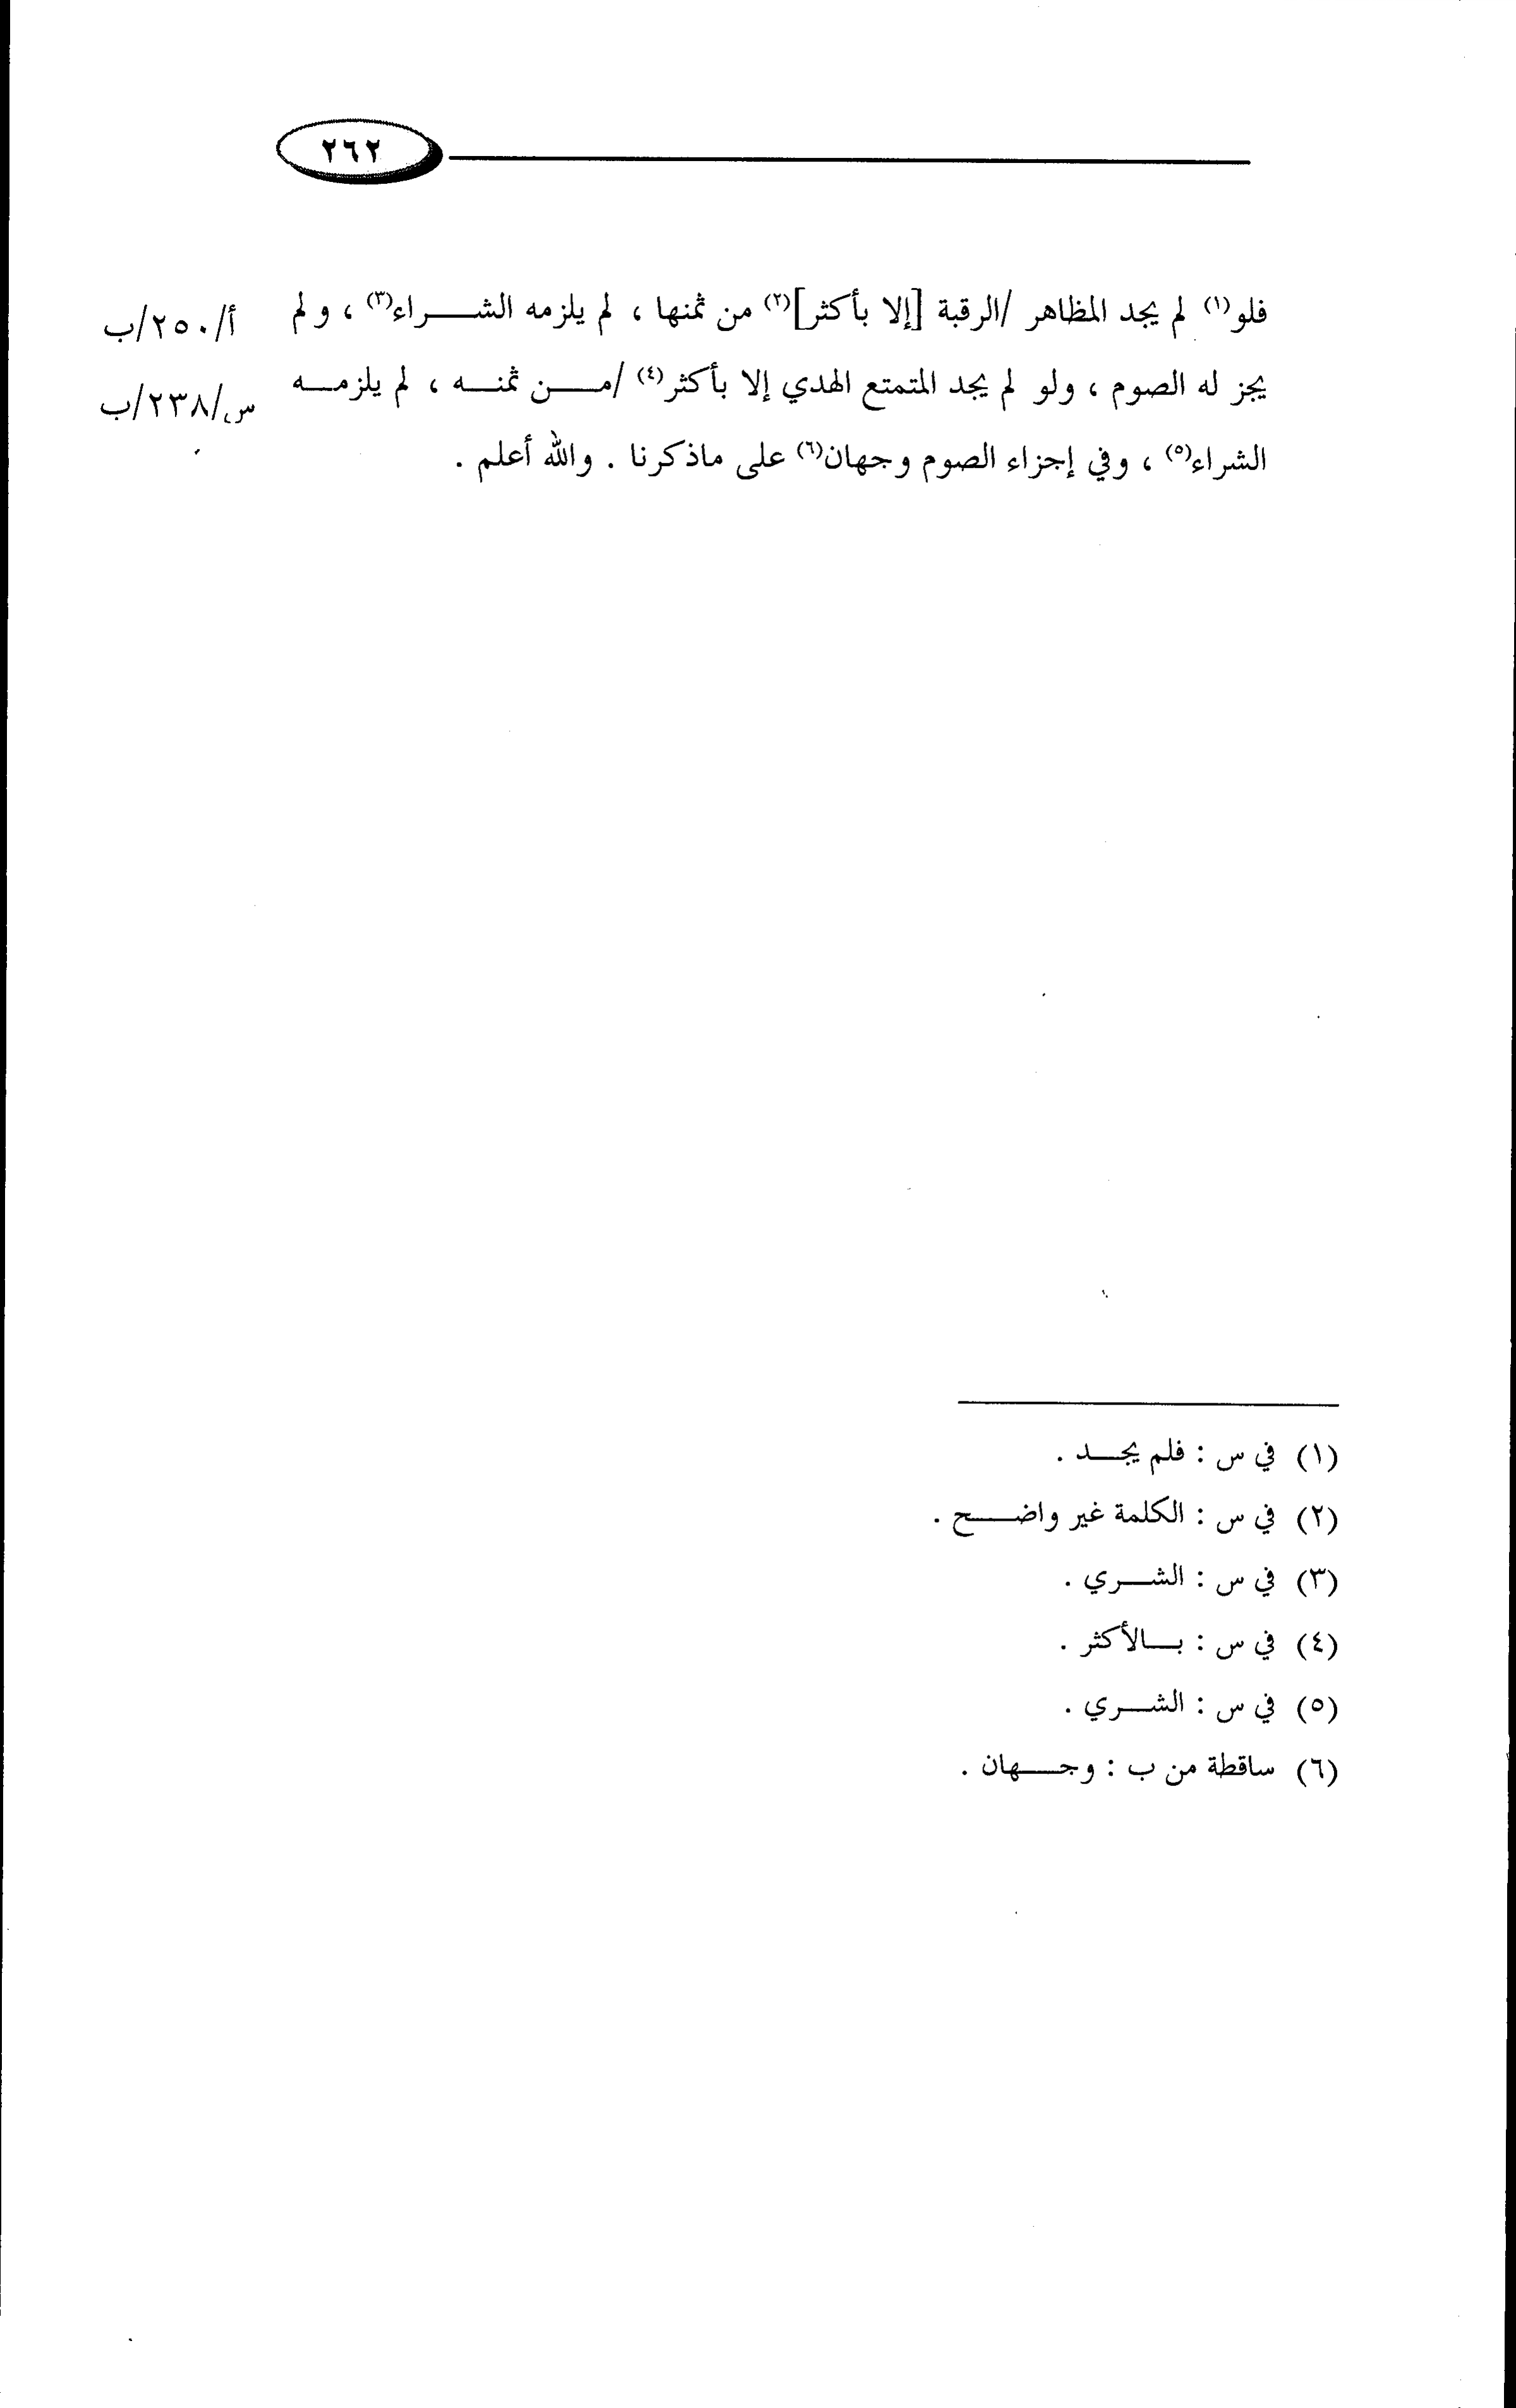 ٢٦٢
فلو(١) لم يجد المظاهر /الرقبة [إلا بأكثر](٢) من ثمنها ، لم يلزمه الشراء(٣) ، ولم
أ/٢٥٠/ب
يجز له الصوم ، ولو لم يجد المتمتع الهدي إلا بأكثر(٤) /من ثمنه ، لم يلزمه
س/٢٣٨/ب
الشراء(٥) ، وفي إجزاء الصوم وجهان(٦) على ماذكرنا . والله أعلم .
(١) في س : فلم يجد .
(٢) في س : الكلمة غير واضح .
(٣) في س : الشري .
(٤) في س : بالأكثر .
(٥) في س : الشري .
(٦) ساقطة من ب : وجهان .